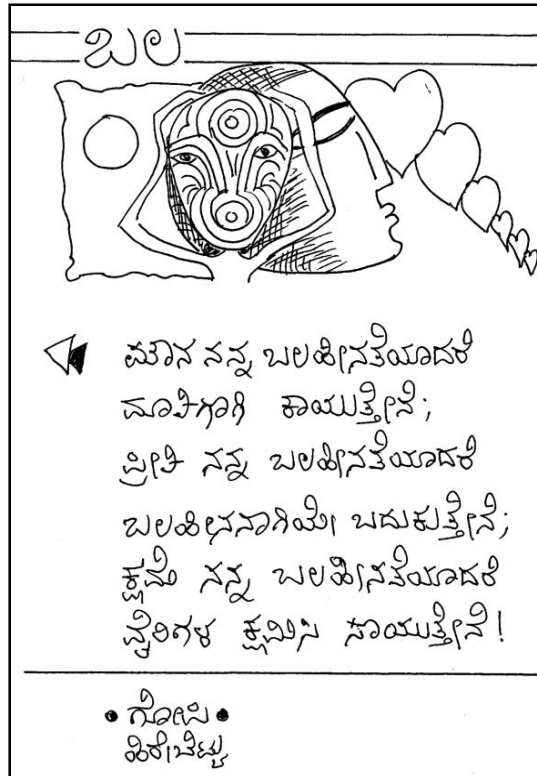 ಬಲ
ಮೌನ ನನ್ನ ಬಲಹೀನತೆಯಾದರೆ
ಮಾತಿಗಾಗಿ ಕಾಯುತ್ತೇನೆ;
ಪ್ರೀತಿ ನನ್ನ ಬಲಹೀನತೆಯಾದರೆ
ಬಲಹೀನನಾಗಿಯೇ ಬದುಕುತ್ತೇನೆ;
ಕ್ಷಮೆ ನನ್ನ ಬಲಹೀನತೆಯಾದರೆ
ವೈರಿಗಳ ಕ್ಷಮಿಸಿ ಸಾಯುತ್ತೇನೆ!
• ಗೋಪಿ •
ಹಿರೇಬೆಟ್ಟು